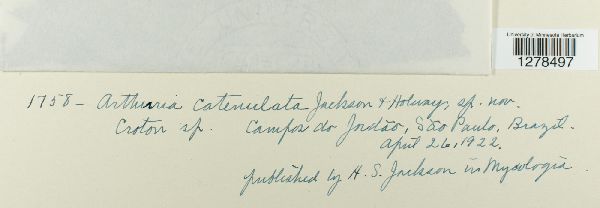 University of Minnesota Herbarium
1278497
1758 - Arthuria catenulata Jackson & Holway, sp. nov.
Croton sp. Campos do Jordão, São Paulo, Brazil.
April 26, 1922.
published by H. S. Jackson in Mycologia.